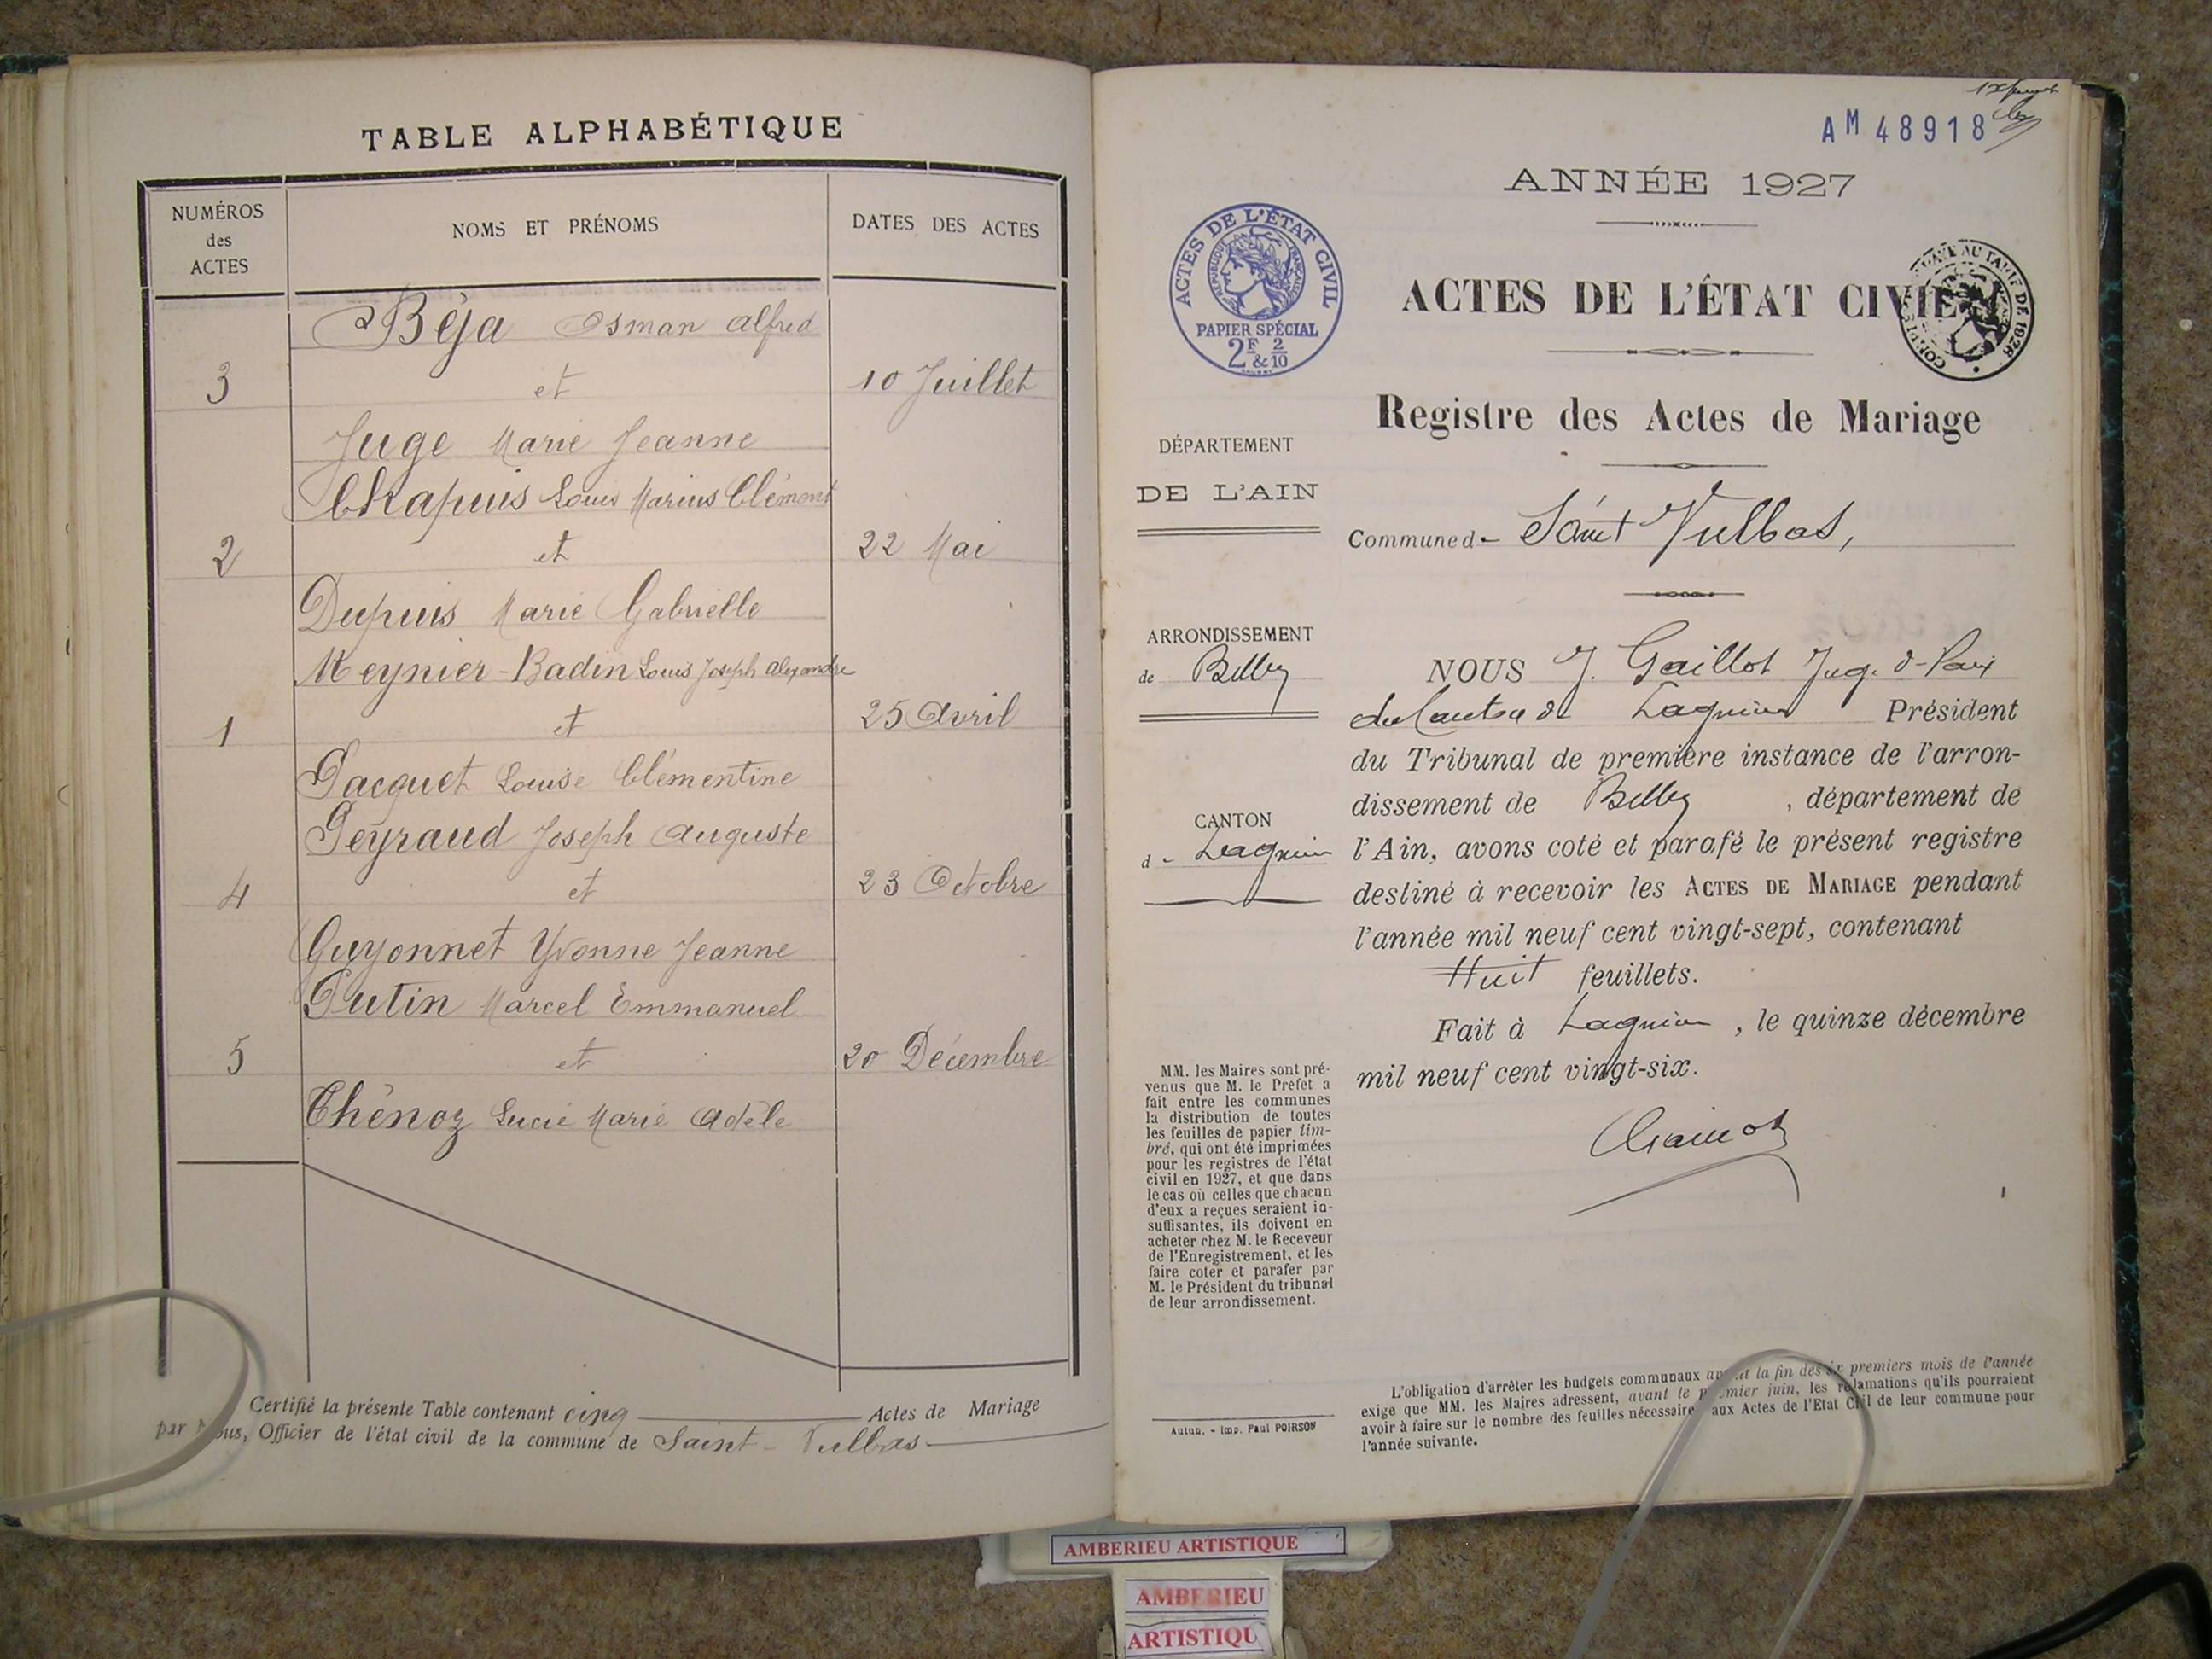 TABLE ALPHABÉTIQUE
NUMÉROS
des
ACTES
NOMS ET PRÉNOMS
DATES DES ACTES
Béja Osman Alfred
3 et 10 Juillet
Juge Marie Jeanne
Chapuis Louis Marius Clément
2 et 22 Mai
Dupuis Marie Gabrielle
Meynier-Badin Louis Joseph Alexandre
1 et 25 Avril
Pacquet Louise Clémentine
Peyraud Joseph Auguste
4 et 23 Octobre
Guyonnet Yvonne Jeanne
Putin Marcel Emmanuel
5 et 20 Décembre
Thénoz Lucie Marie Adèle
Certifié la présente Table contenant cinq Actes de Mariage
par Nous, Officier de l'état civil de la commune de Saint-Vulbas
AM 48918
ANNÉE 1927
ACTES DE L'ÉTAT CIVIL
PAPIER SPÉCIAL
2F & 2/10
RÉPUBLIQUE FRANÇAISE
ACTES DE L'ÉTAT CIVIL
Registre des Actes de Mariage
DÉPARTEMENT
DE L'AIN
Commune d- Saint Vulbas,
ARRONDISSEMENT
de Belley
CANTON
d- Lagnieu
NOUS J. Gaillot Juge d- Paix
du Canton de Lagnieu Président
du Tribunal de première instance de l'arron-
dissement de Belley, département de
l'Ain, avons coté et parafé le présent registre
destiné à recevoir les ACTES DE MARIAGE pendant
l'année mil neuf cent vingt-sept, contenant
Huit feuillets.
Fait à Lagnieu, le quinze décembre
mil neuf cent vingt-six.
MM. les Maires sont pré-
venus que M. le Préfet a
fait entre les communes
la distribution de toutes
les feuilles de papier tim-
bré, qui ont été imprimées
pour les registres de l'état
civil en 1927, et que dans
le cas où celles que chacun
d'eux a reçues seraient in-
suffisantes, ils doivent en
acheter chez M. le Receveur
de l'Enregistrement, et les
faire coter et parafer par
M. le Président du tribunal
de leur arrondissement.
Autun. - Imp. Paul POIRSON
L'obligation d'arrêter les budgets communaux avant la fin des six premiers mois de l'année
exige que MM. les Maires adressent, avant le premier juin, les réclamations qu'ils pourraient
avoir à faire sur le nombre des feuilles nécessaires aux Actes de l'Etat Civil de leur commune pour
l'année suivante.
AMBERIEU ARTISTIQUE
AMBERIEU
ARTISTIQU